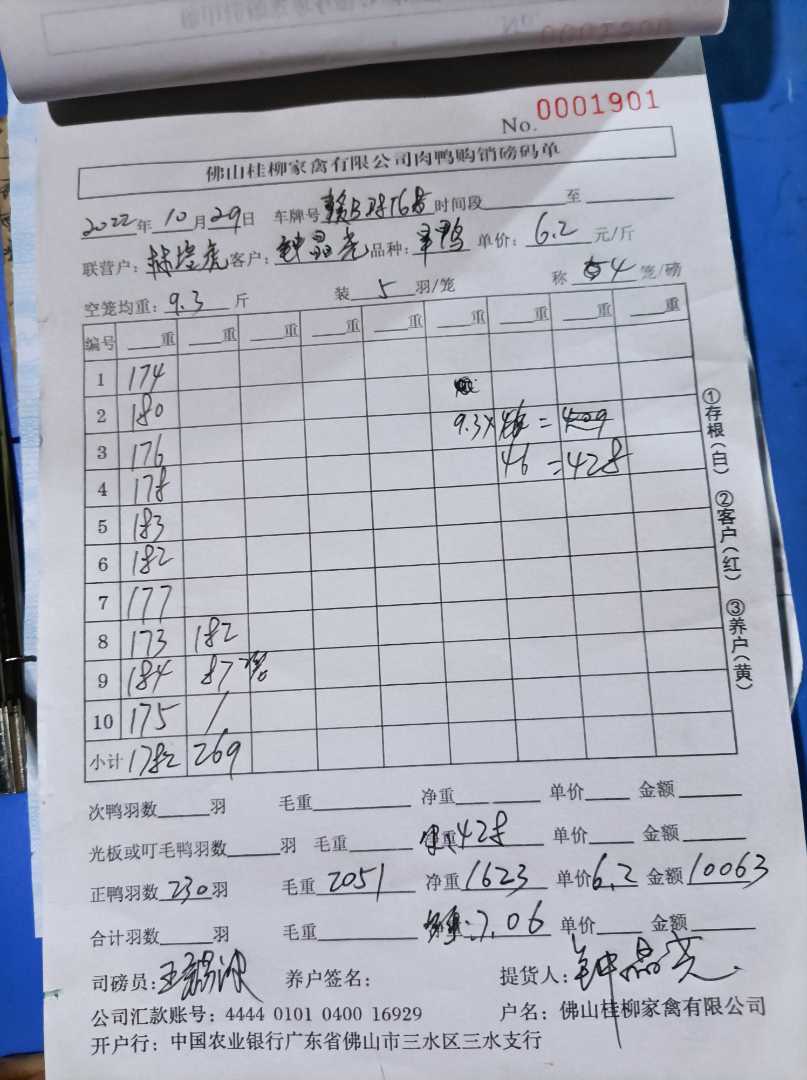 No. 0001901
佛山桂柳家禽有限公司肉鸭购销磅码单
2022年10月29日 车牌号 时间段 至
联营户: 客户:钟晶亮 品种: 单价:6.2元/斤
空笼均重:9.3斤 装5羽/笼 称4笼/磅
编号 重 重 重 重 重 重 重 重 重
1 174
2 180
3 176 9.3× =
4 178 46 =428
5 183
6 182
7 177
8 173 182
9 184 87
10 175 /
小计 1782 269
次鸭羽数 羽 毛重 净重 单价 金额
光板或叮毛鸭羽数 羽 毛重 428 单价 金额
正鸭羽数230羽 毛重2051 净重1623 单价6.2 金额10063
合计羽数 羽 毛重 7.06 单价 金额
司磅员: 养户签名: 提货人:钟晶亮
公司汇款账号:4444 0101 0400 16929 户名:佛山桂柳家禽有限公司
开户行:中国农业银行广东省佛山市三水区三水支行
①存根(白) ②客户(红) ③养户(黄)